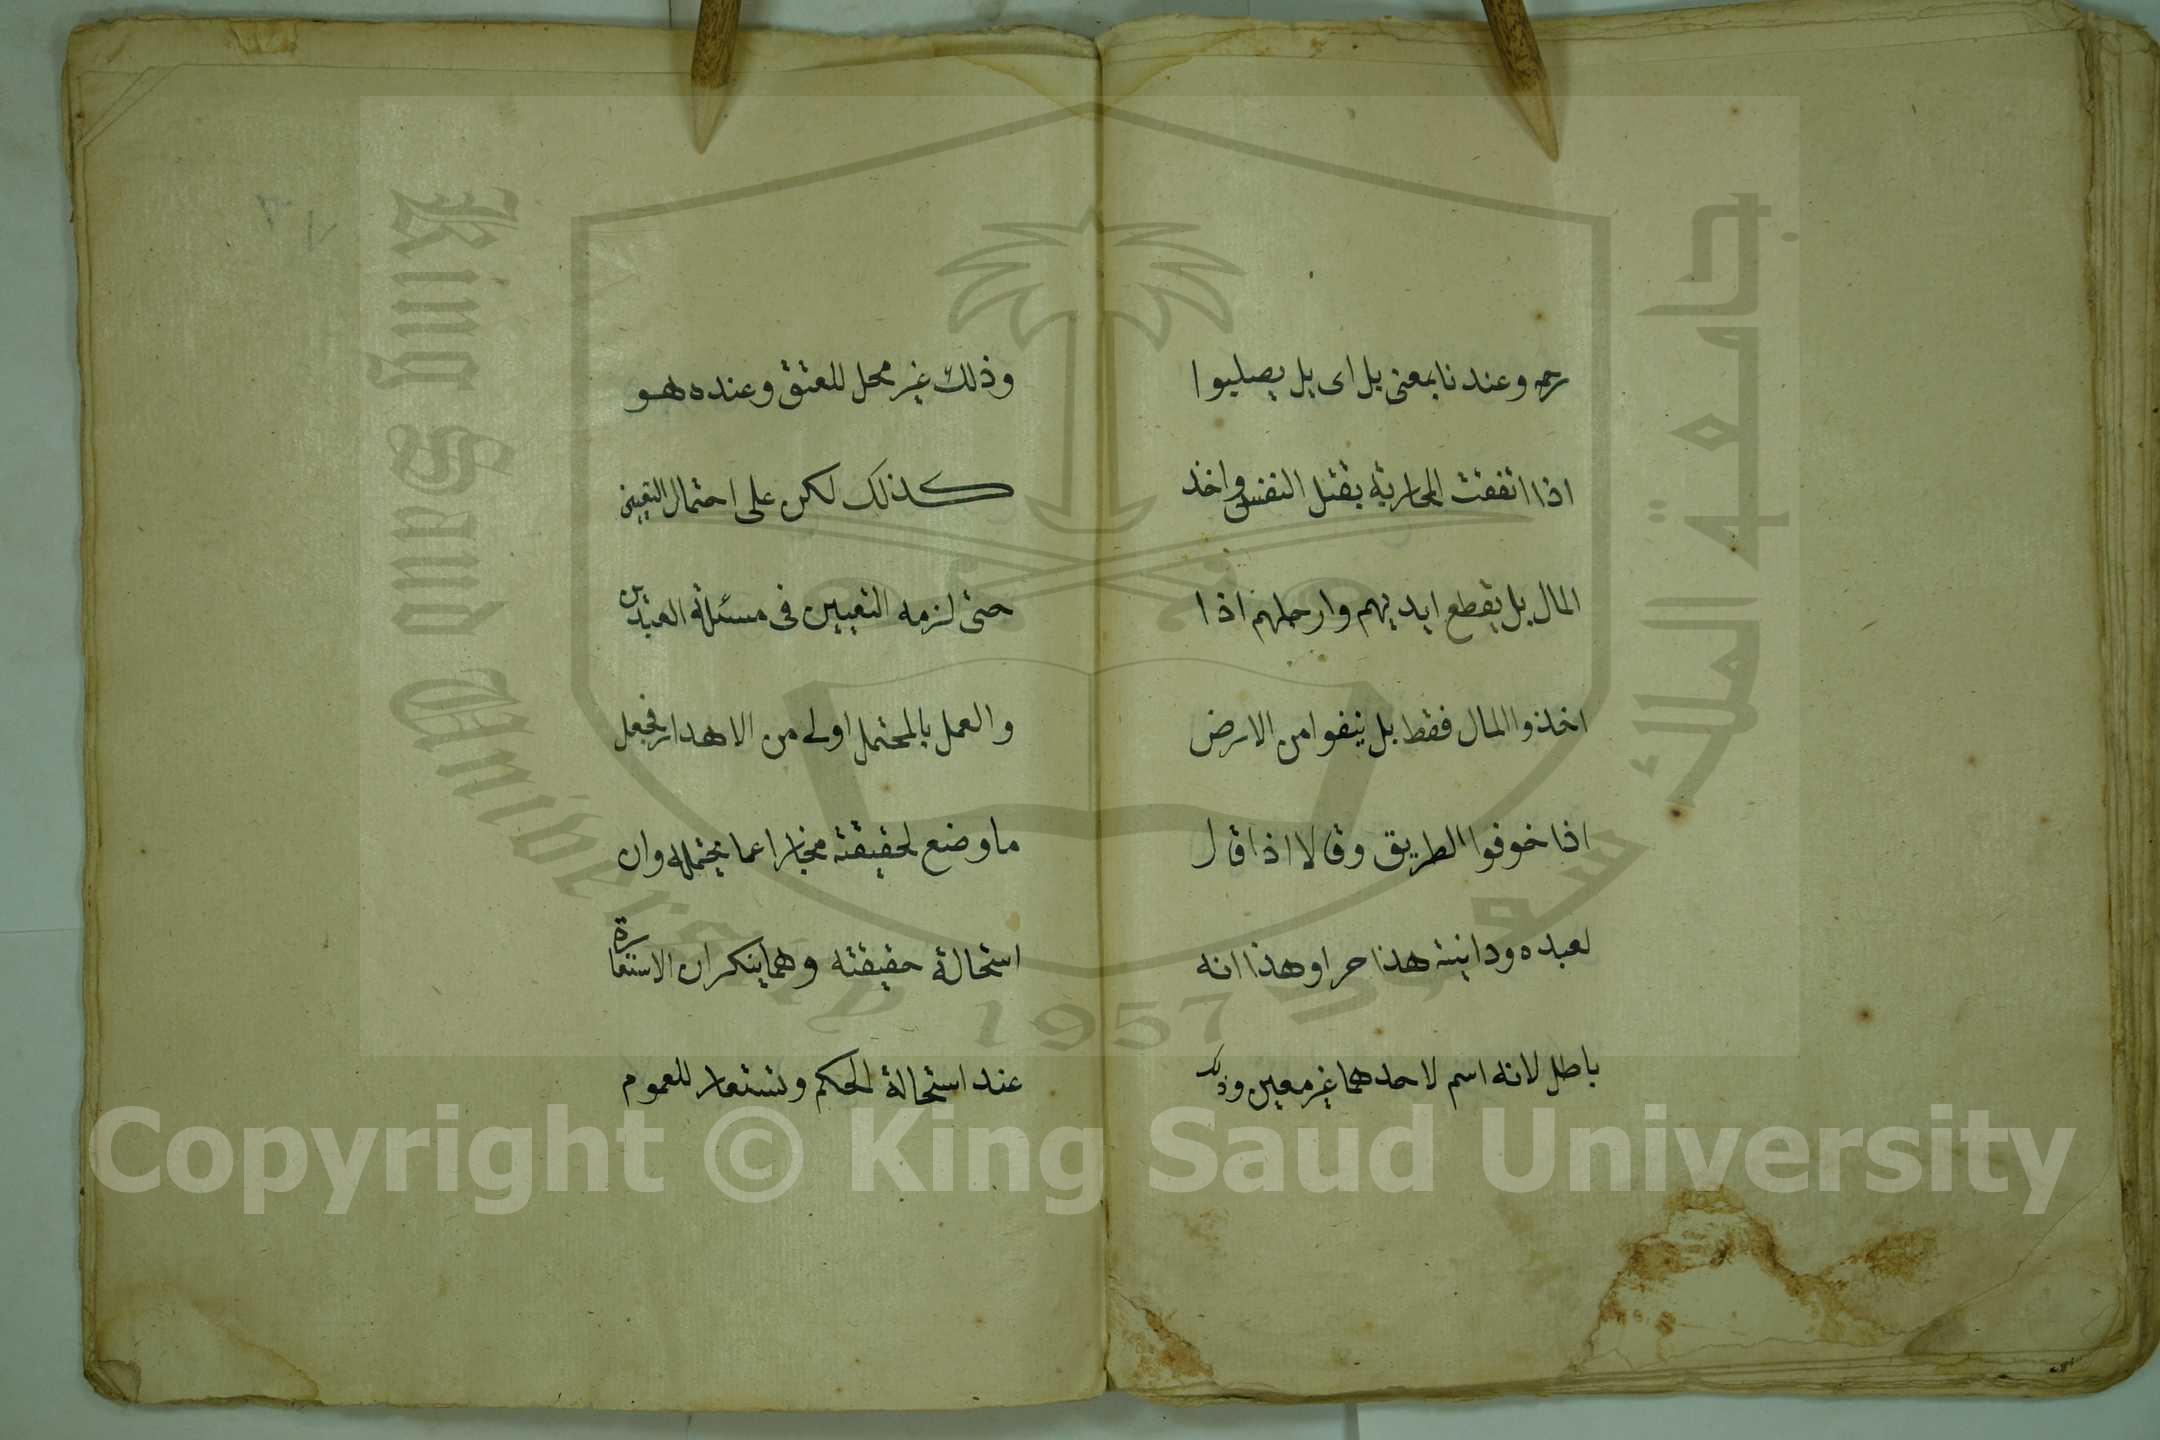 رحمه وعندنا بمعنى بل اى بل يصلبوا
اذا اتفقت المحاربة بقتل النفس واخذ
المال بل يقطع ايديهم وارجلهم اذا
اخذوا المال فقط بل ينفوا من الارض
اذا خوفوا الطريق وقالا اذا قال
لعبده ودابته هذا حر او هذا انه
باطل لانه اسم لاحدهما غير معين وذلك
وذلك غير محل للعتق وعنده هو
كذلك لكن على احتمال التعيين
حتى لزمه التعيين فى مسئلة العبدين
والعمل بالمحتمل اولى من الاهدار فجعل
ما وضع لحقيقته مجازا عما يحتمله وان
استحالة حقيقته وهما ينكران الاستعارة
عند استحالة الحكم وتستعار للعموم
King Saud University
1957
جامعة الملك سعود
Copyright © King Saud University